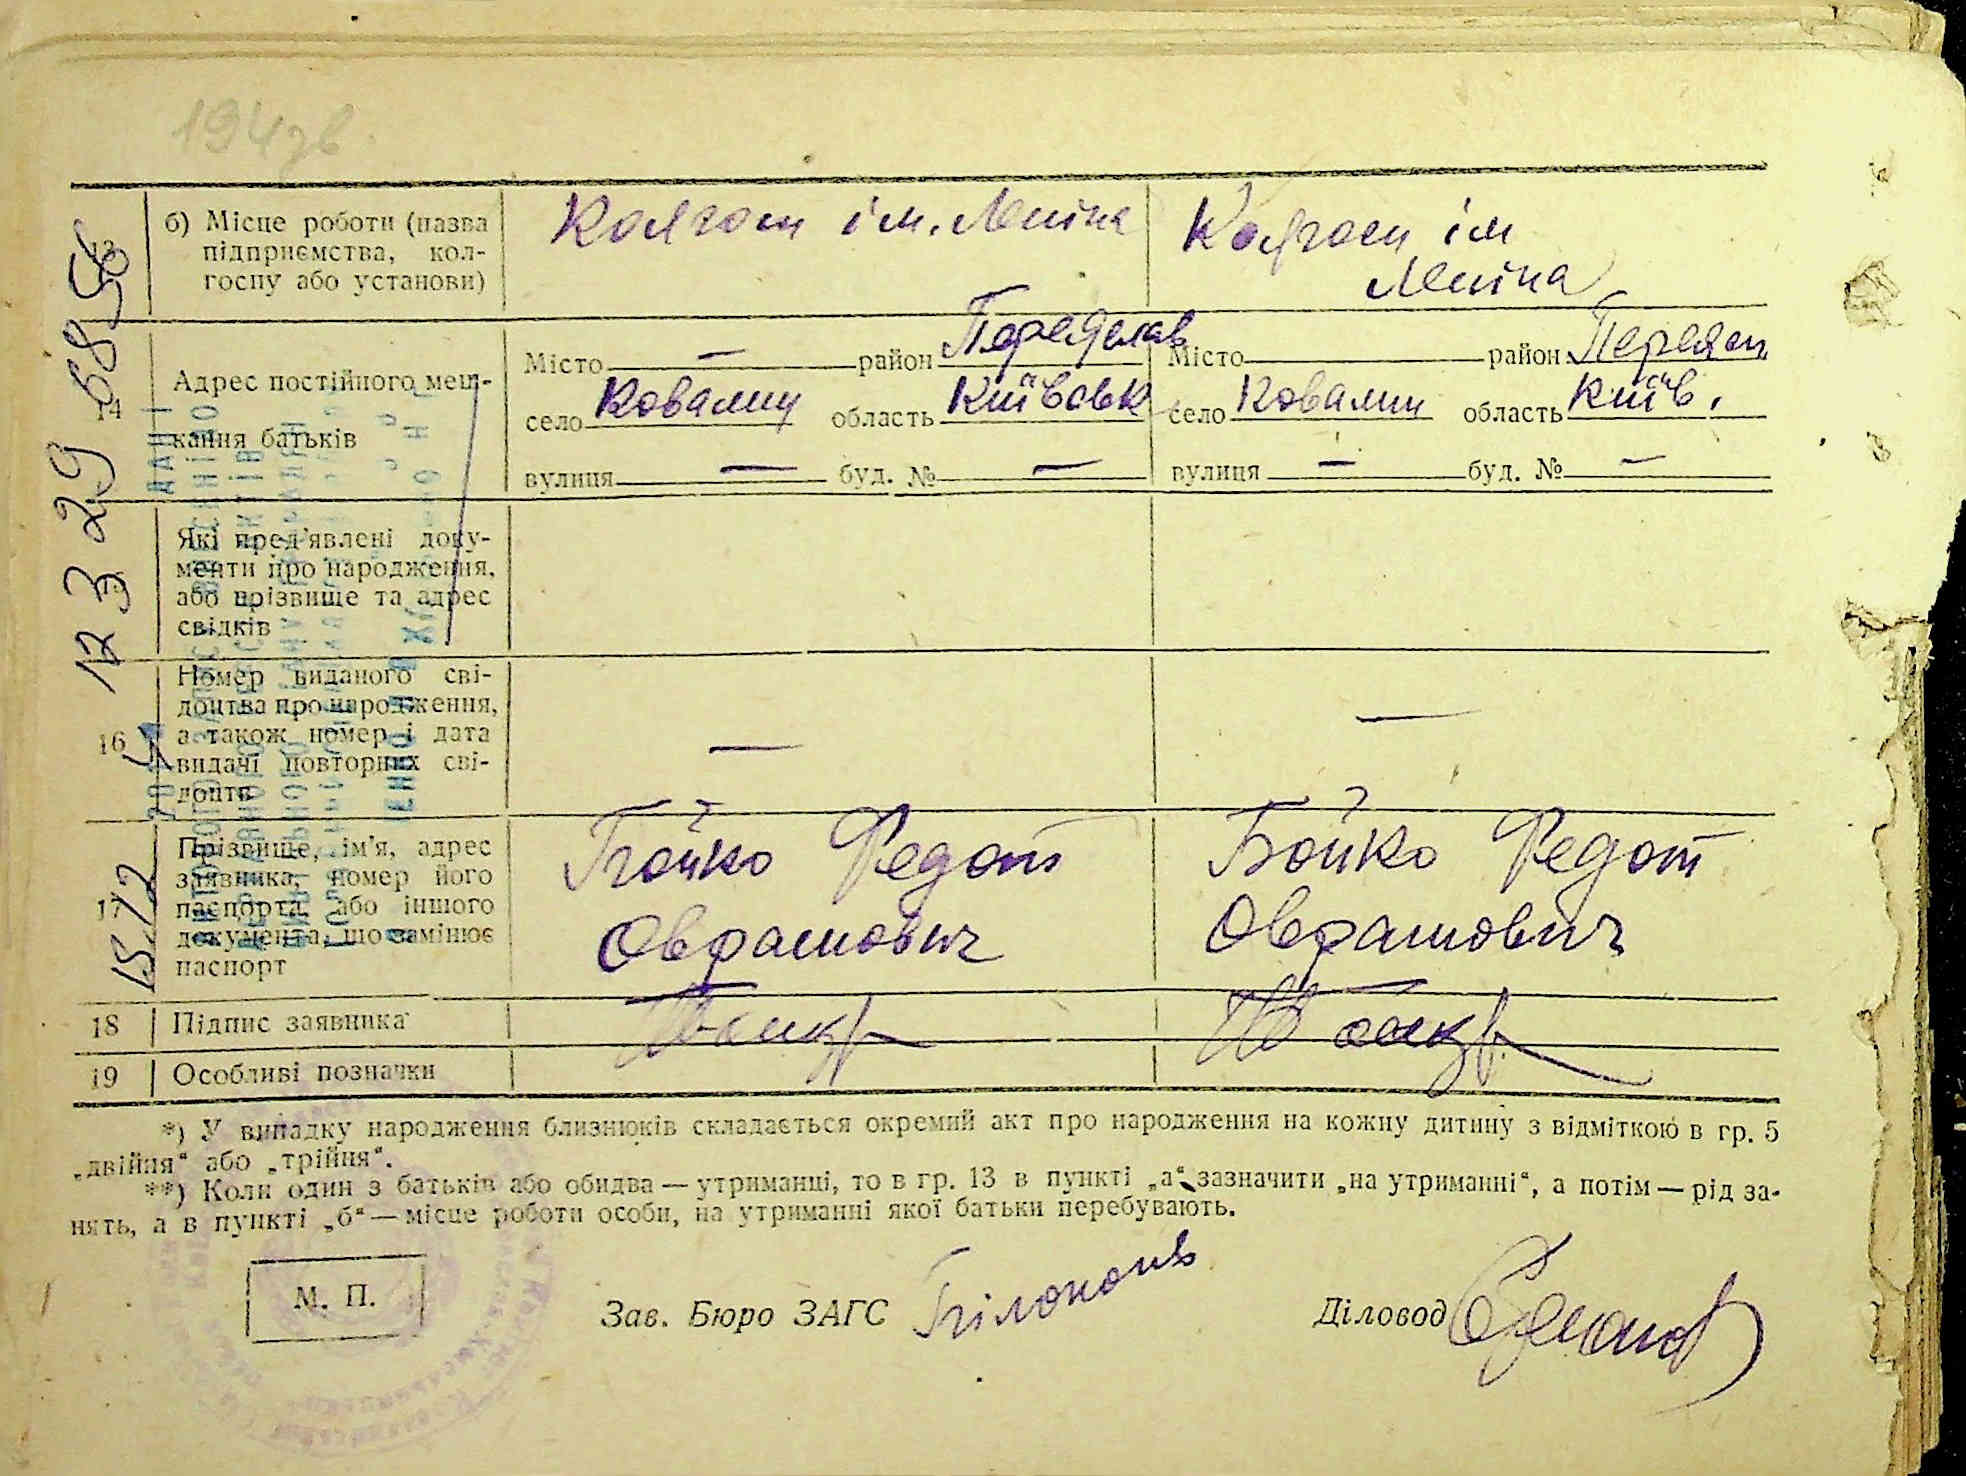 194зв
б) Місце роботи (назва Колгосп ім. Леніна Колгосп ім
підприємства, кол- Леніна
госпу або установи)
14 Адрес постійного меш-
кання батьків
Місто — район Переяслав Місто район Переясл
село Ковалин область Київськ село Ковалин область Київ.
вулиця — буд. № — вулиця — буд. № —
Які пред'явлені доку-
менти про народження,
або прізвище та адрес
свідків
16 Номер виданого сві-
доцтва про народження,
а також номер і дата
видачі повторних сві-
доцтв
— —
17 Прізвище, ім'я, адрес
заявника, номер його
паспорта, або іншого
документа, що замінює
паспорт
Бойко Федот Бойко Федот
Оврамович Оврамович
18 Підпис заявника
19 Особливі позначки
*) У випадку народження близнюків складається окремий акт про народження на кожну дитину з відміткою в гр. 5
„двійня“ або „трійня“.
**) Коли один з батьків або обидва — утриманці, то в гр. 13 в пункті „а“ зазначити „на утриманні“, а потім — рід за-
нять, а в пункті „б“ — місце роботи особи, на утриманні якої батьки перебувають.
М. П.
Зав. Бюро ЗАГС Діловод